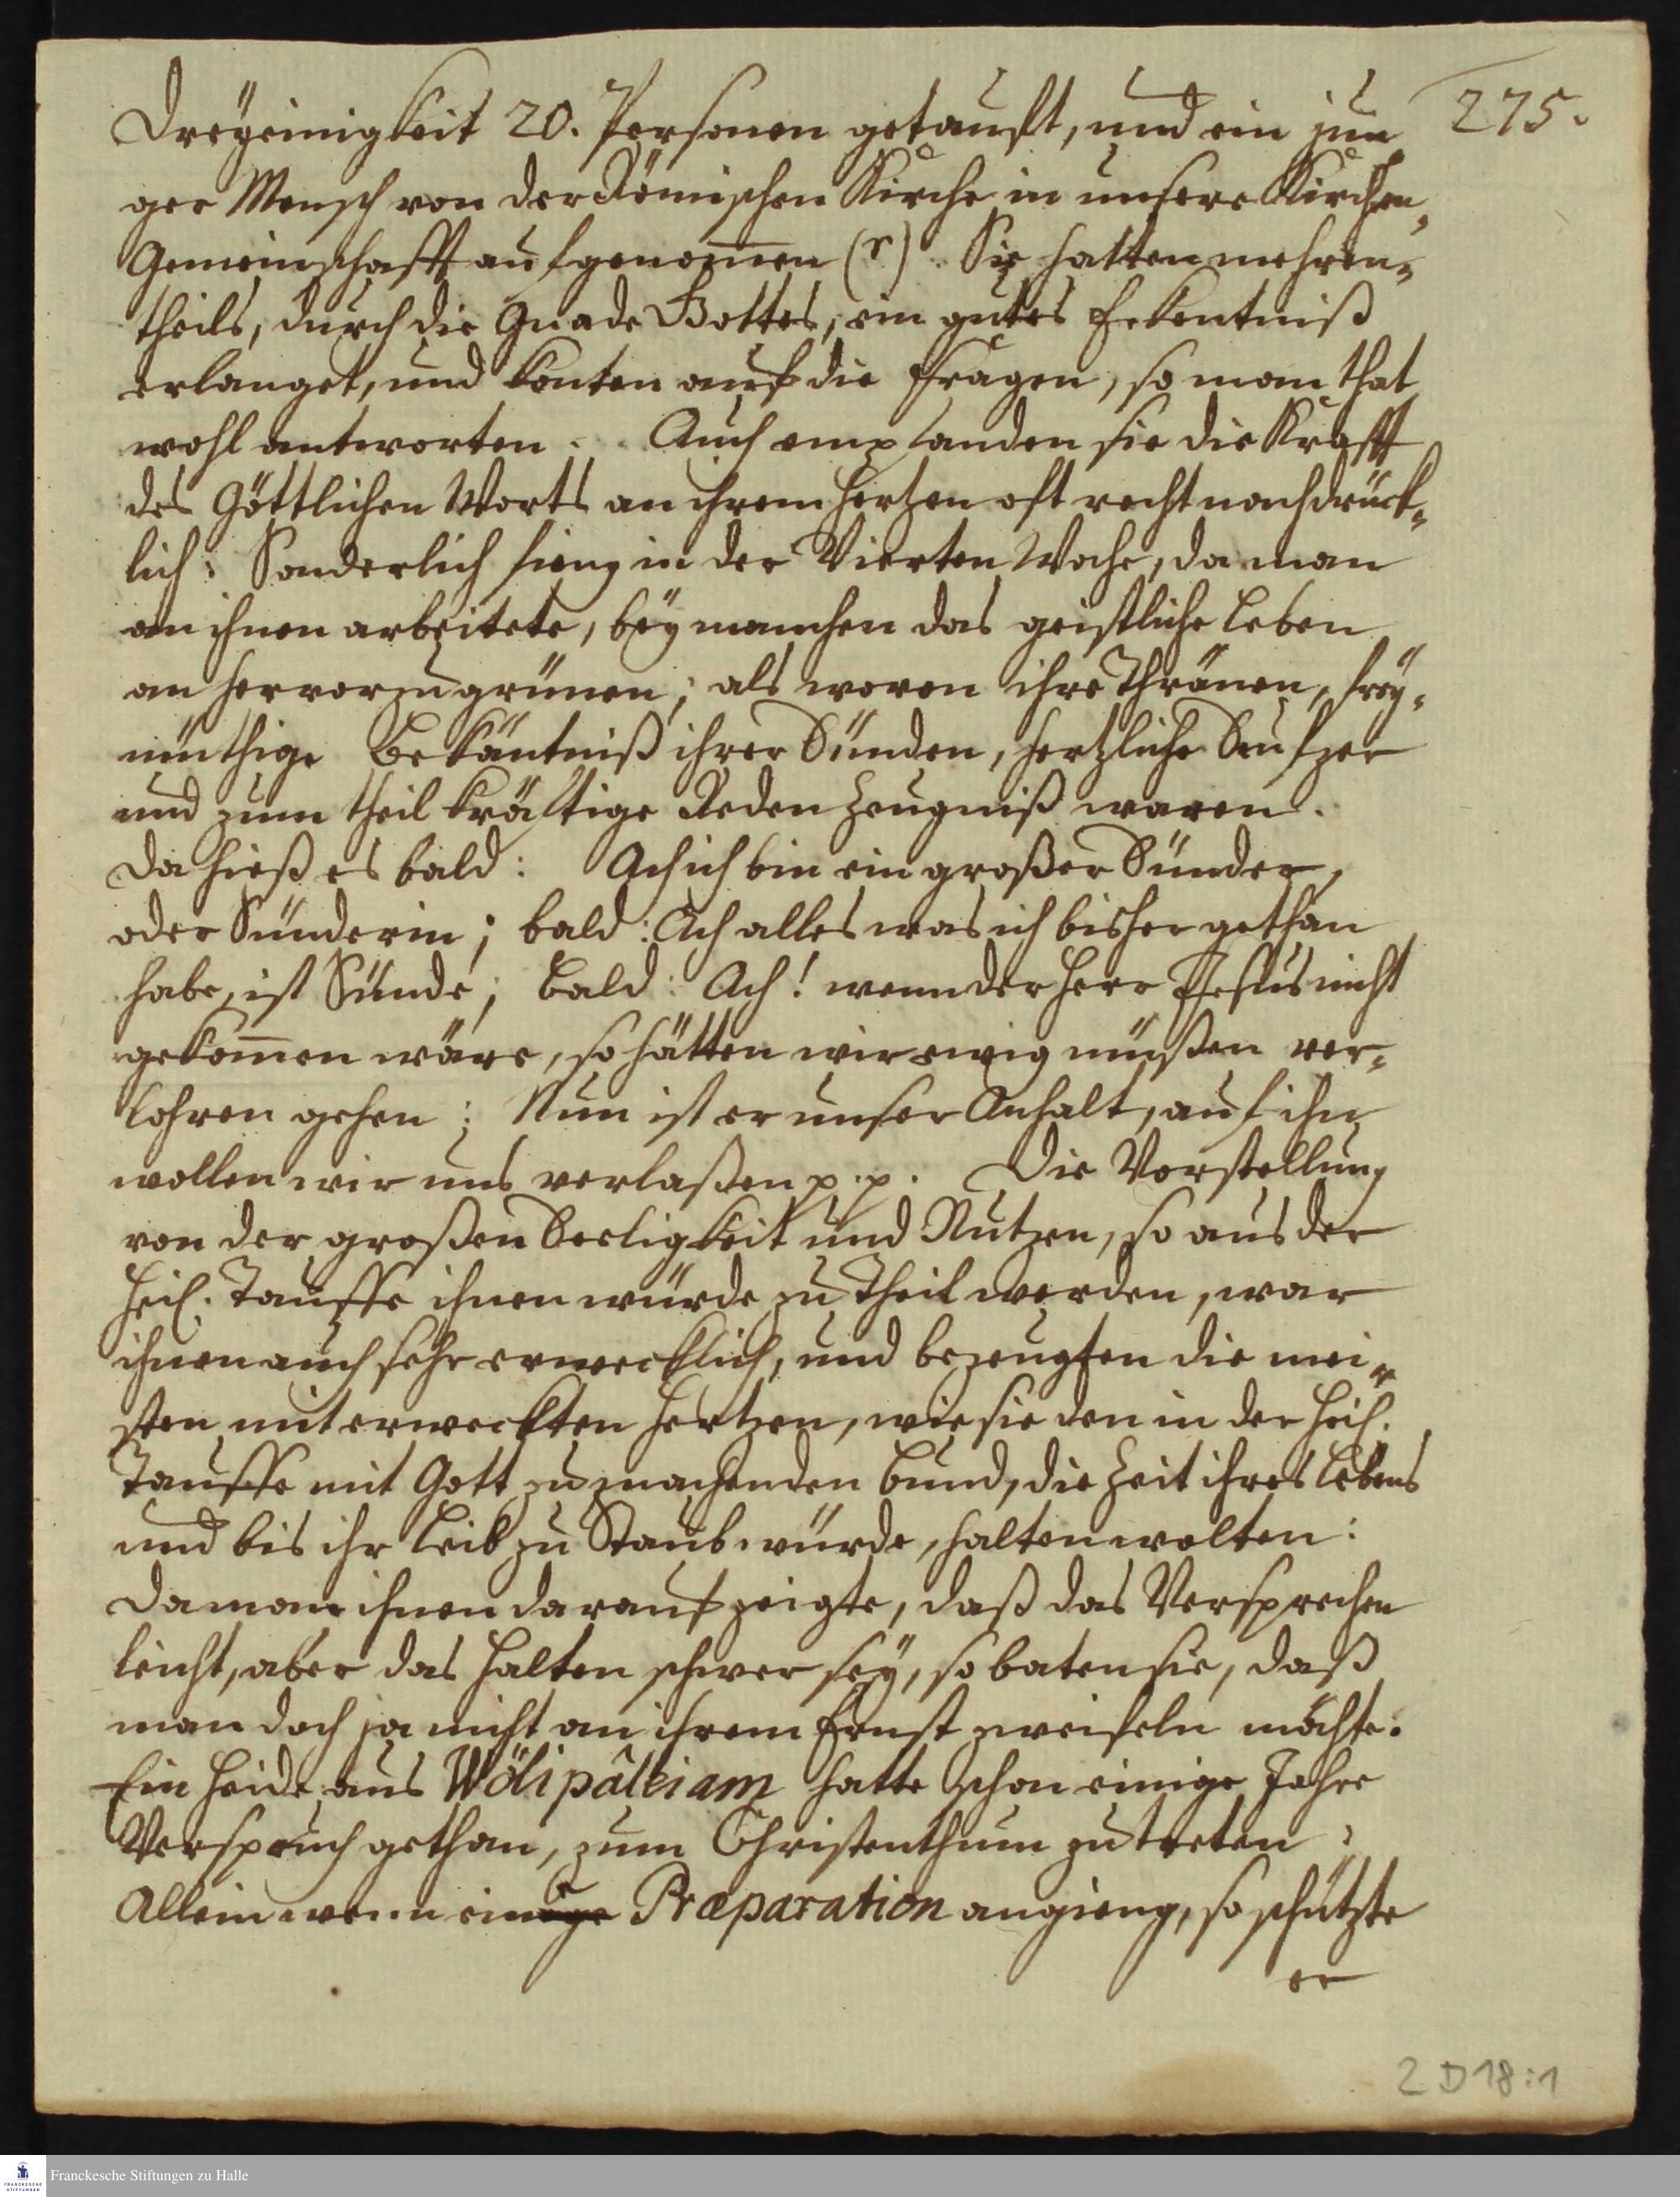 275.
Dreÿeinigkeit 20. Personen getauft, und ein jun
ger Mensch von der Römischen Kirche in unsere Kirchen,
Gemeinschafft aufgenom̅en (r). Sie hatten mehren„
theils, durch die Gnade Gottes, ein gutes Erkentniß
erlanget, und konten auf die Fragen, so man that
wohl antworten. Auch empfanden sie die Krafft
des Göttlichen Worts an ihrem Hertzen oft recht nachdrück„
lich: Sonderlich fieng in der Vierten Woche, da man
an ihnen arbeitete, beÿ manchen das geistliche Leben
an hervorzugrünen; als wovon ihre Thränen, freÿ„
müthige Bekäntniß ihrer Sünden, hertzliche Seufzer
und zum theil kräftige Reden Zeugniß waren.
Da hieß es bald: Ach ich bin ein großer Sünder,
oder Sünderin; bald: Ach alles was ich bisher gethan
habe, ist Sünde; bald: Ach! wenn der Herr Jesus nicht
gekom̅en wäre, so hätten wir ewig müßen ver„
lohren gehen; Nun ist er unser Anhalt, auf ihn
wollen wir uns verlaßen p. p. Die Vorstellung
von der großen Seeligkeit und Nutzen, so aus der
Heil. Tauffe ihnen würde zu Theil werden, war
ihnen auch sehr erwecklich, und bezeugten die mei„
sten mit erweckten Hertzen, wie sie den in der Heil.
Tauffe mit Gott zu machenden Bund, die Zeit ihres Lebens
und bis ihr Leib zu Staub würde, halten wolten:
Da man ihnen darauf zeigte, daß das Versprechen
leicht, aber das Halten schwer seÿ, so baten sie, daß
man doch ja nicht an ihrem Ernst zweifeln möchte.
Ein Heide aus Wölipâleiam hatte schon einige Jahre
Verspruch gethan, zum Christenthum zu treten;
Allein wenn eine Præparation angieng, so schützte
er
2 D 18:1
Franckesche Stiftungen zu Halle
FRANCKESCHE
STIFTUNGEN